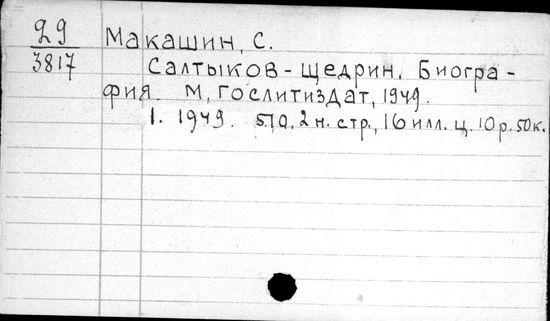 29
3817
Макашин, С.
Салтыков-Щедрин. Биогра-
фия. М, Гослитиздат, 1949.
1. 1949. 510, 2 н. стр., 16 илл. ц. 10 р. 50 к.